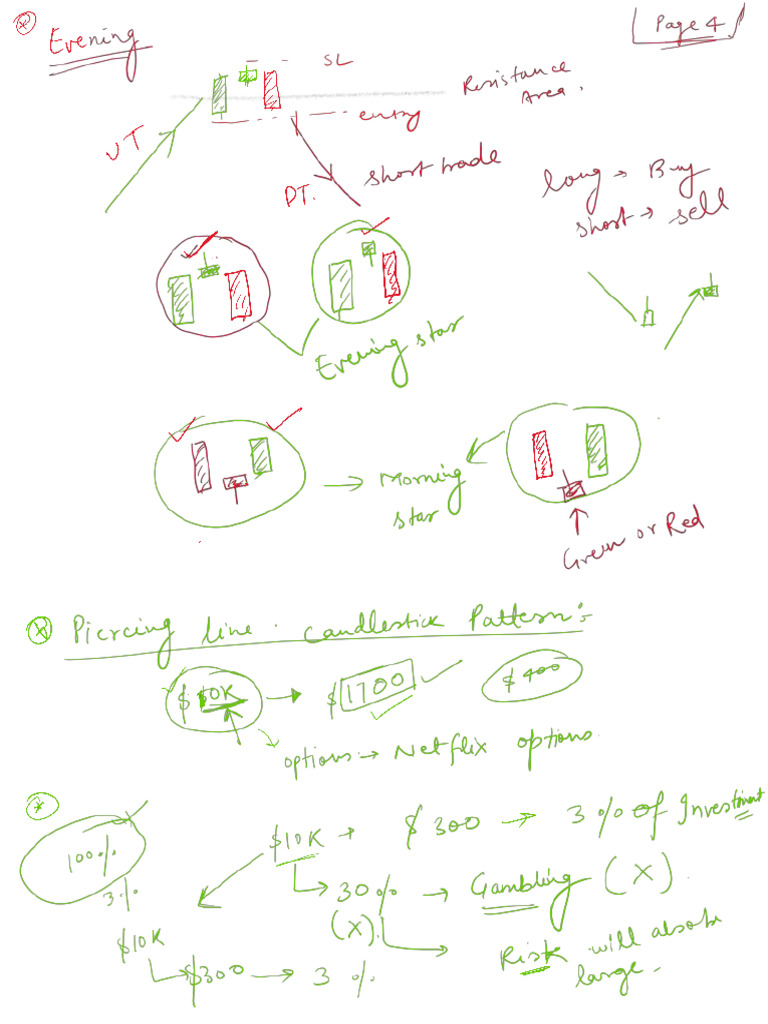 Page 4
Evening
SL
Resistance Area.
entry
UT
DT.
short trade
long → Buy
short → sell
Evening star
→ Morning star
Green or Red
Piercing line. Candlestick Pattern:-
$10K → $1700 $400
options → Netflix options.
100%
3%
$10K → $300 → 3% of Investment
30% → Gambling (X).
(X).
Risk will absorb large.
$10K
$300 → 3 %